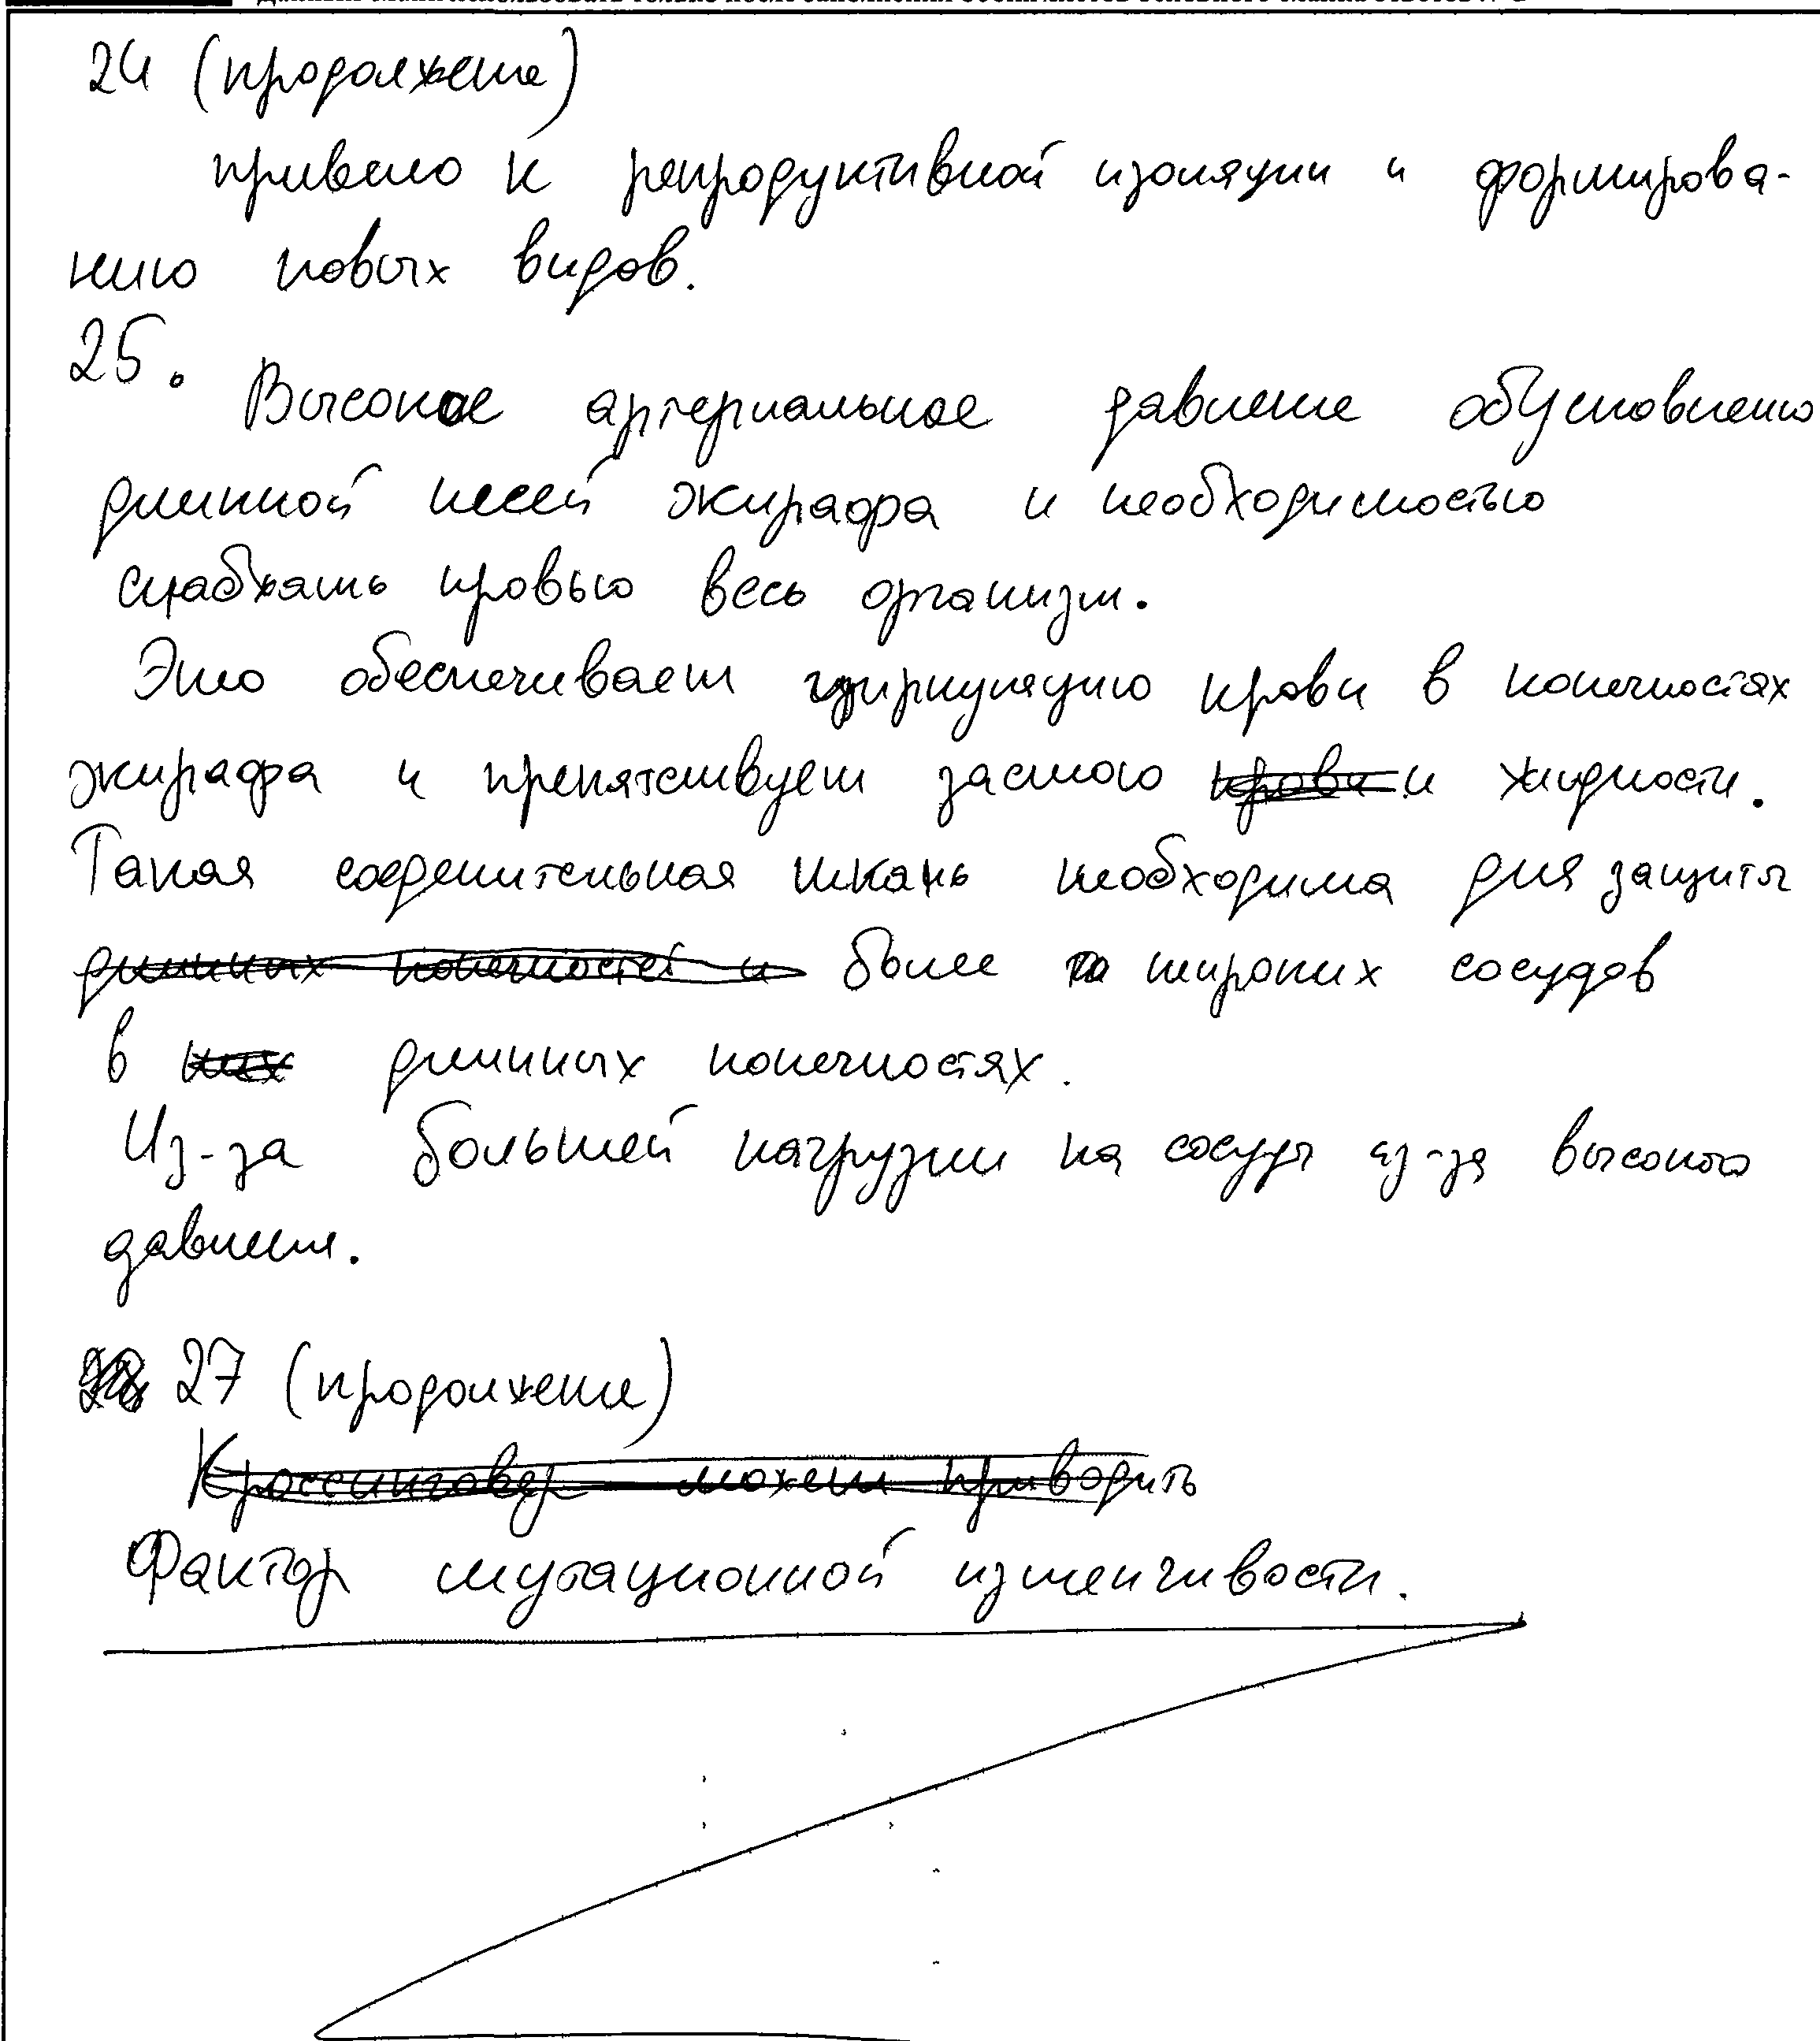 24 (продолжение)
привело к репродуктивной изоляции и формирова-
нию новых видов.
25. Высокое артериальное давление обусловлено
длинной шеей жирафа и необходимостью
снабжать кровью весь организм.
Это обеспечивает циркуляцию крови в конечностях
жирафа и препятствует застою крови и жидкости.
Такая соединительная ткань необходима для защиты
длинных конечностей и более широких сосудов
в них длинных конечностях.
Из-за большей нагрузки на сосуды из-за высокого
давления.
27 (продолжение)
Кроссинговер может приводить
Фактор мутационной изменчивости.